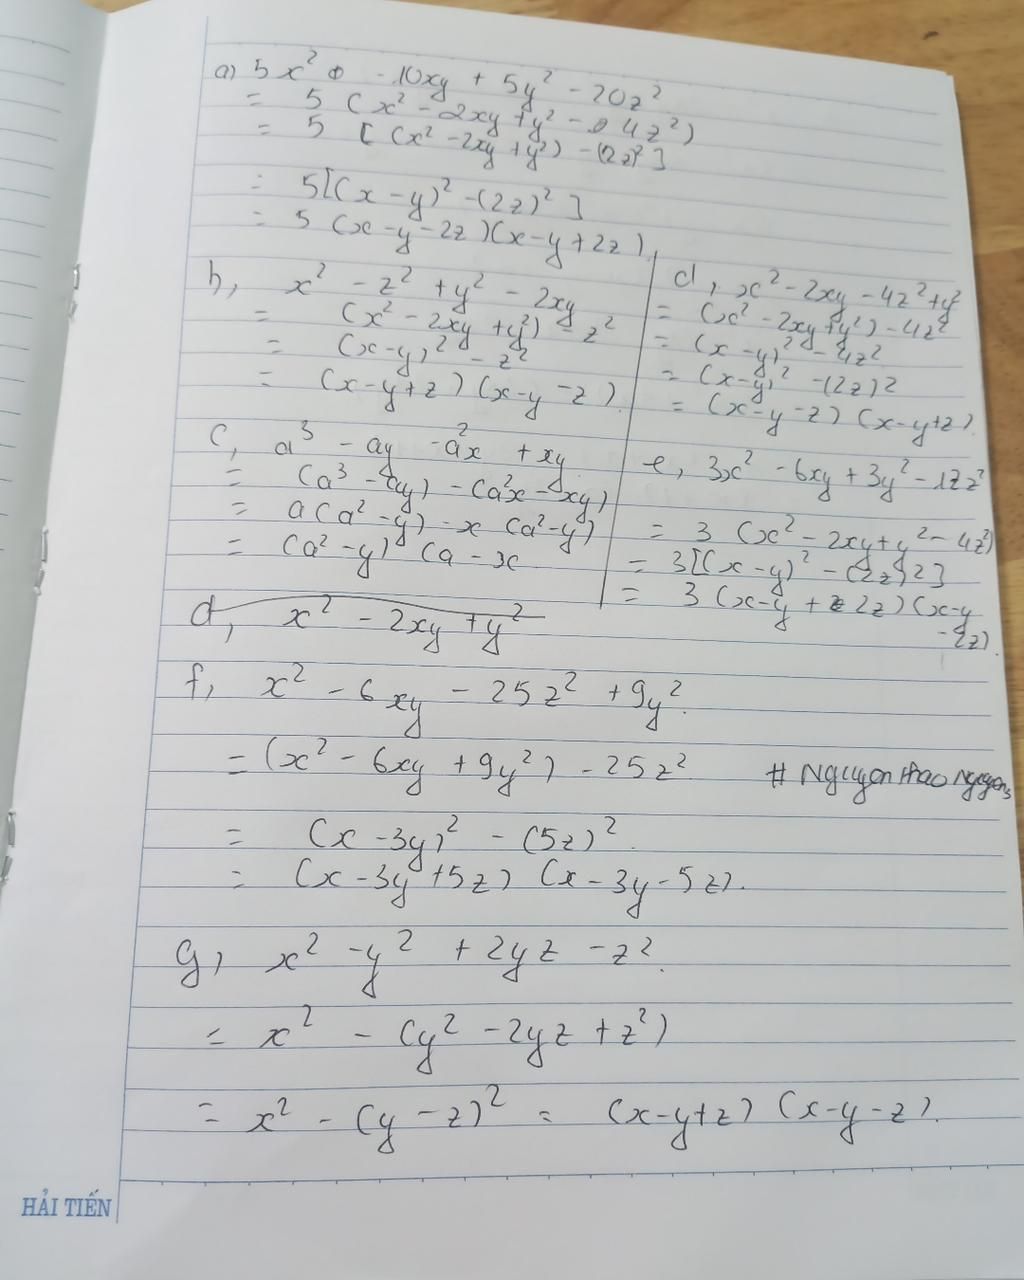 a) 5x² - 10xy + 5y² - 20z²
= 5 (x² - 2xy + y² - 4z²)
= 5 [(x² - 2xy + y²) - (2z)²]
= 5[(x - y)² - (2z)²]
= 5 (x - y - 2z)(x - y + 2z)
b, x² - z² + y² - 2xy
= (x² - 2xy + y²) - z²
= (x - y)² - z²
= (x - y + z) (x - y - z).
c, a³ - ay - a²x + xy
= (a³ - ay) - (a²x - xy)
= a(a² - y) - x (a² - y)
= (a² - y) (a - x
d, x² - 2xy - 4z² + y²
= (x² - 2xy + y²) - 4z²
= (x - y)² - 4z²
= (x - y)² - (2z)²
= (x - y - z) (x - y + z).
e, 3x² - 6xy + 3y² - 12z²
= 3 (x² - 2xy + y² - 4z²)
= 3[(x - y)² - (2z)²]
= 3 (x - y + 2z) (x - y
- 2z).
d, x² - 2xy + y²
f, x² - 6xy - 25z² + 9y².
= (x² - 6xy + 9y²) - 25z²
# Nguyen thao Nguyen
= (x - 3y)² - (5z)².
= (x - 3y + 5z) (x - 3y - 5z).
g, x² - y² + 2yz - z².
= x² - (y² - 2yz + z²)
= x² - (y - z)² = (x - y + z) (x - y - z).
HẢI TIẾN